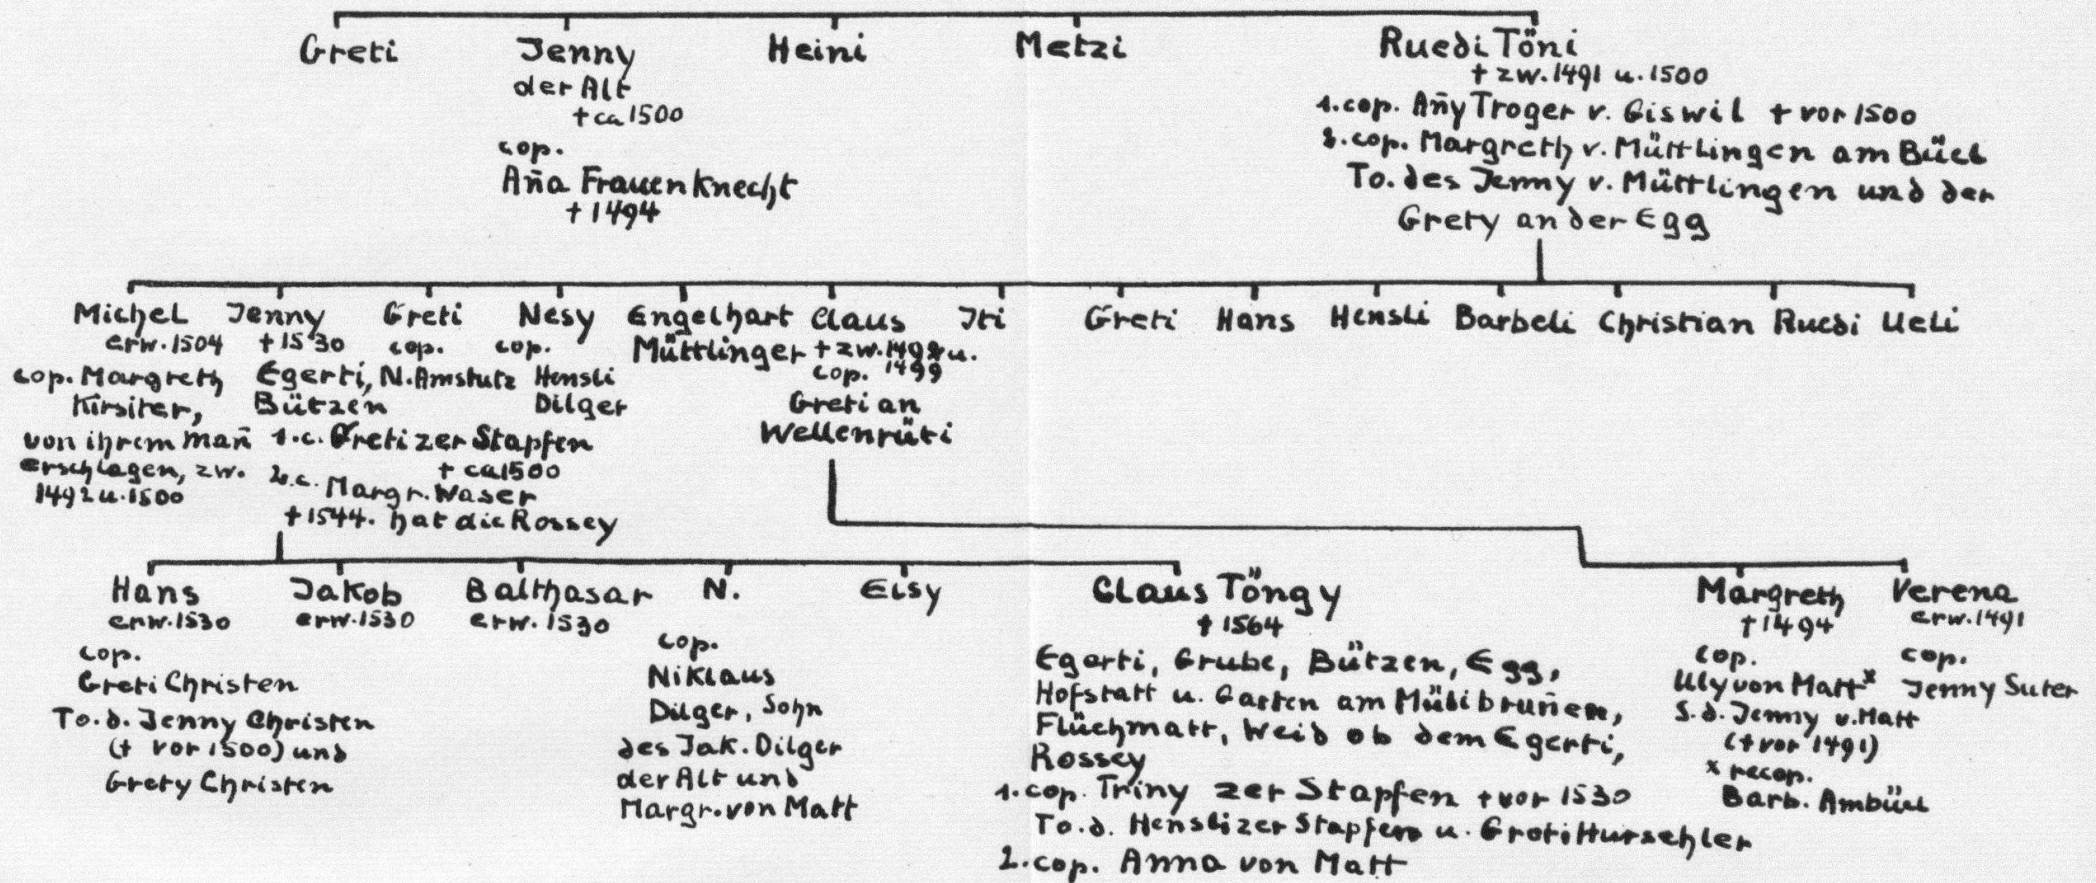 Greti
Jenny
der Alt
† ca 1500
cop.
Añna Frauenknecht
† 1494
Heini
Metzi
Ruedi Töni
† zw. 1491 u. 1500
1. cop. Añy Troger v. Giswil † vor 1500
2. cop. Margreth v. Müttlingen am Büel
To. des Jenny v. Müttlingen und der
Grety an der Egg
Michel
erw. 1504
cop. Margreth
Kirsiter,
von ihrem Mañ
erschlagen, zw.
1492 u. 1500
Jenny
† 1530
Egerti,
Bützen
1. c. Greti zer Stapfen
† ca 1500
2. c. Margr. Waser
† 1544. hat die Rossey
Greti
cop.
N. Amstutz
Nesy
cop.
Hensli
Dilger
Engelhart
Müttlinger
Claus
† zw. 1492 u.
1499
cop.
Greti an
Wellenrüti
Iti
Greti
Hans
Hensli
Barbeli
Christian
Ruedi
Ueli
Hans
erw. 1530
cop.
Greti Christen
To. d. Jenny Christen
(† vor 1500) und
Grety Christen
Jakob
erw. 1530
Balthasar
erw. 1530
N.
cop.
Niklaus
Dilger, Sohn
des Jak. Dilger
der Alt und
Margr. von Matt
Elsy
Claus Töngy
† 1564
Egerti, Grube, Bützen, Egg,
Hofstatt u. Garten am Mülibruñen,
Flüchmatt, Weid ob dem Egerti,
Rossey
1. cop. Triny zer Stapfen † vor 1530
To. d. Hensli zer Stapfen u. Greti
2. cop. Anna von Matt
Margreth
† 1494
cop.
Uly von Matt x
S. d. Jenny v. Matt
(† vor 1491)
x recop.
Barb. Ambüel
Verena
erw. 1491
cop.
Jenny Suter